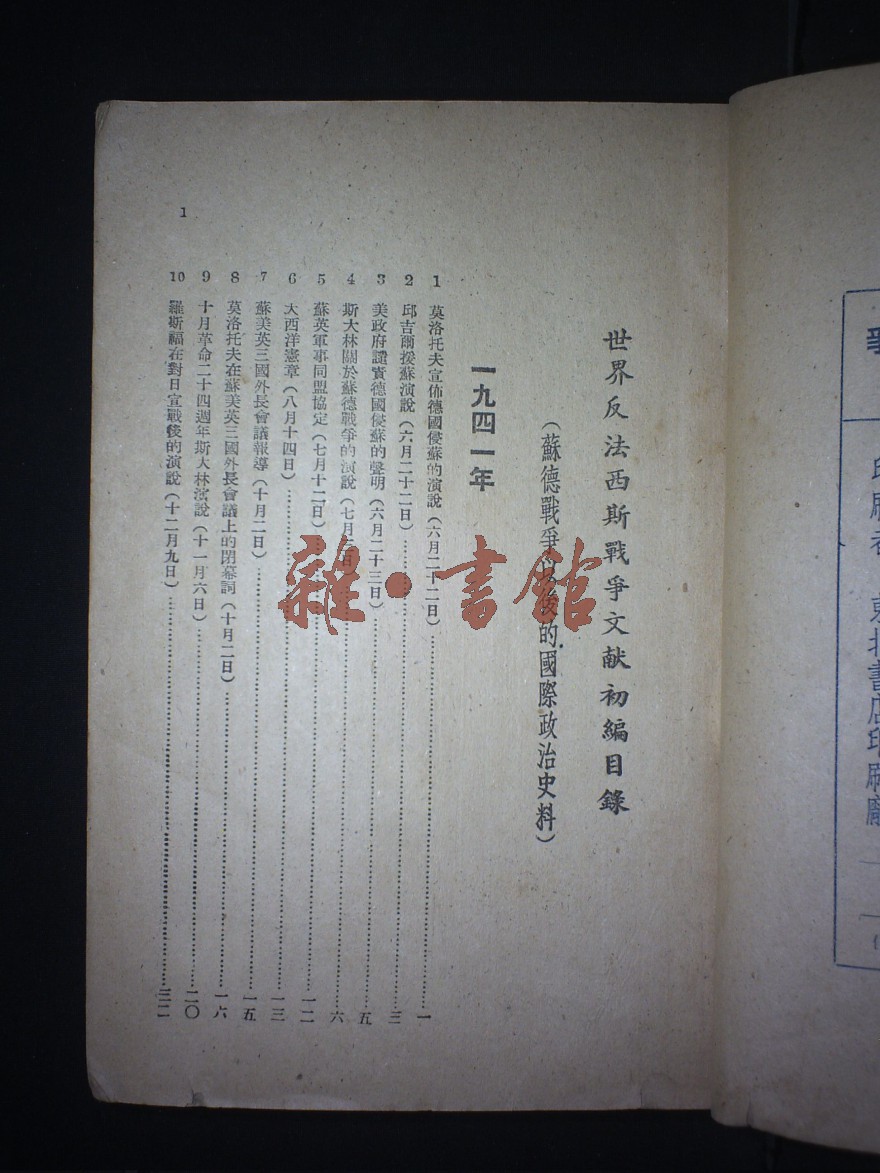 世界反法西斯戰爭文献初編目錄
（蘇德戰爭以後的國際政治史料）
一九四一年
1 莫洛托夫宣佈德國侵蘇的演說（六月二十二日）…………一
2 邱吉爾援蘇演說（六月二十二日）…………三
3 美政府譴責德國侵蘇的聲明（六月二十三日）…………五
4 斯大林關於蘇德戰爭的演說（七月三日）…………六
5 蘇英軍事同盟協定（七月十二日）…………一二
6 大西洋憲章（八月十四日）…………一三
7 蘇美英三國外長會議報導（十月二日）…………一五
8 莫洛托夫在蘇美英三國外長會議上的閉幕詞（十月二日）…………一六
9 十月革命二十四週年斯大林演說（十一月六日）…………二〇
10 羅斯福在對日宣戰後的演說（十二月九日）…………三二
1
雜·書館
印刷者 東北書店印刷廠